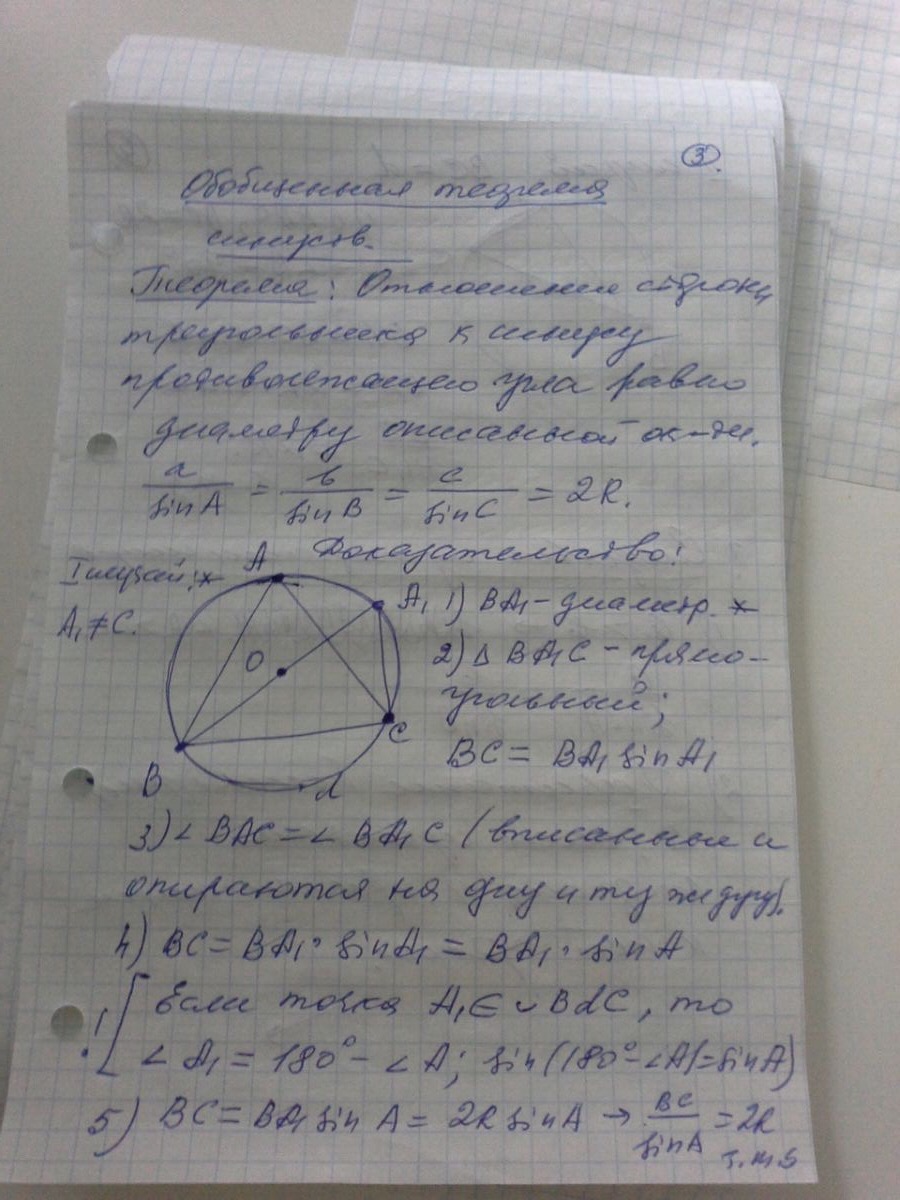 3.
Обобщенная теорема
синусов.
Теорема: Отношение стороны
треугольника к синусу
противолежащего угла равно
диаметру описанной ок-ти.
a/sinA = b/sinB = c/sinC = 2R.
Доказательство:
I случай:*
A₁ ≠ C.
A
A₁
O
B
C
d
1) BA₁ - диаметр. *
2) Δ BA₁C - прямо-
угольный;
BC = BA₁ sin A₁
3) ∠ BAC = ∠ BA₁C (вписанные и
опираются на одну и ту же дугу).
4) BC = BA₁ · sin A₁ = BA₁ · sin A
! [ Если точка A₁ ∈ ◡ BdC, то
∠ A₁ = 180° - ∠ A; sin(180° - ∠A) = sin A)
5) BC = BA₁ sin A = 2R sin A → BC/sinA = 2R
ч.т.д